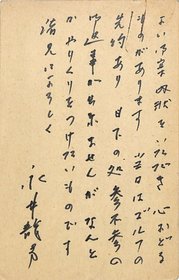 よい御案内状をいただき 心おどる
ものがあります 当日はゴルフの
先約あり 目下の処 参不参の
御返事が出来ませんが なんと
かやりくりをつけたいものです
諸兄によろしく
永井龍男